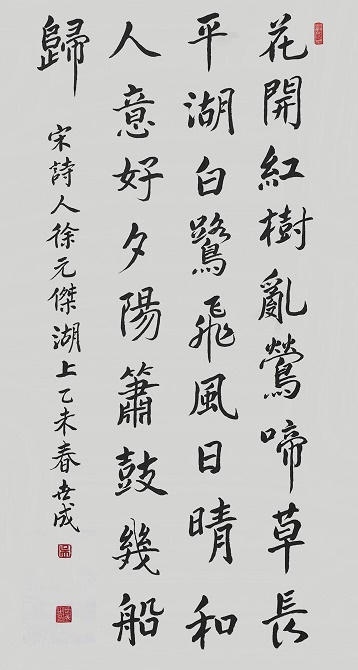 花開紅樹亂鶯啼草長
平湖白鷺飛風日晴和
人意好夕陽簫鼓幾船
歸
宋詩人徐元傑湖上乙未春世成